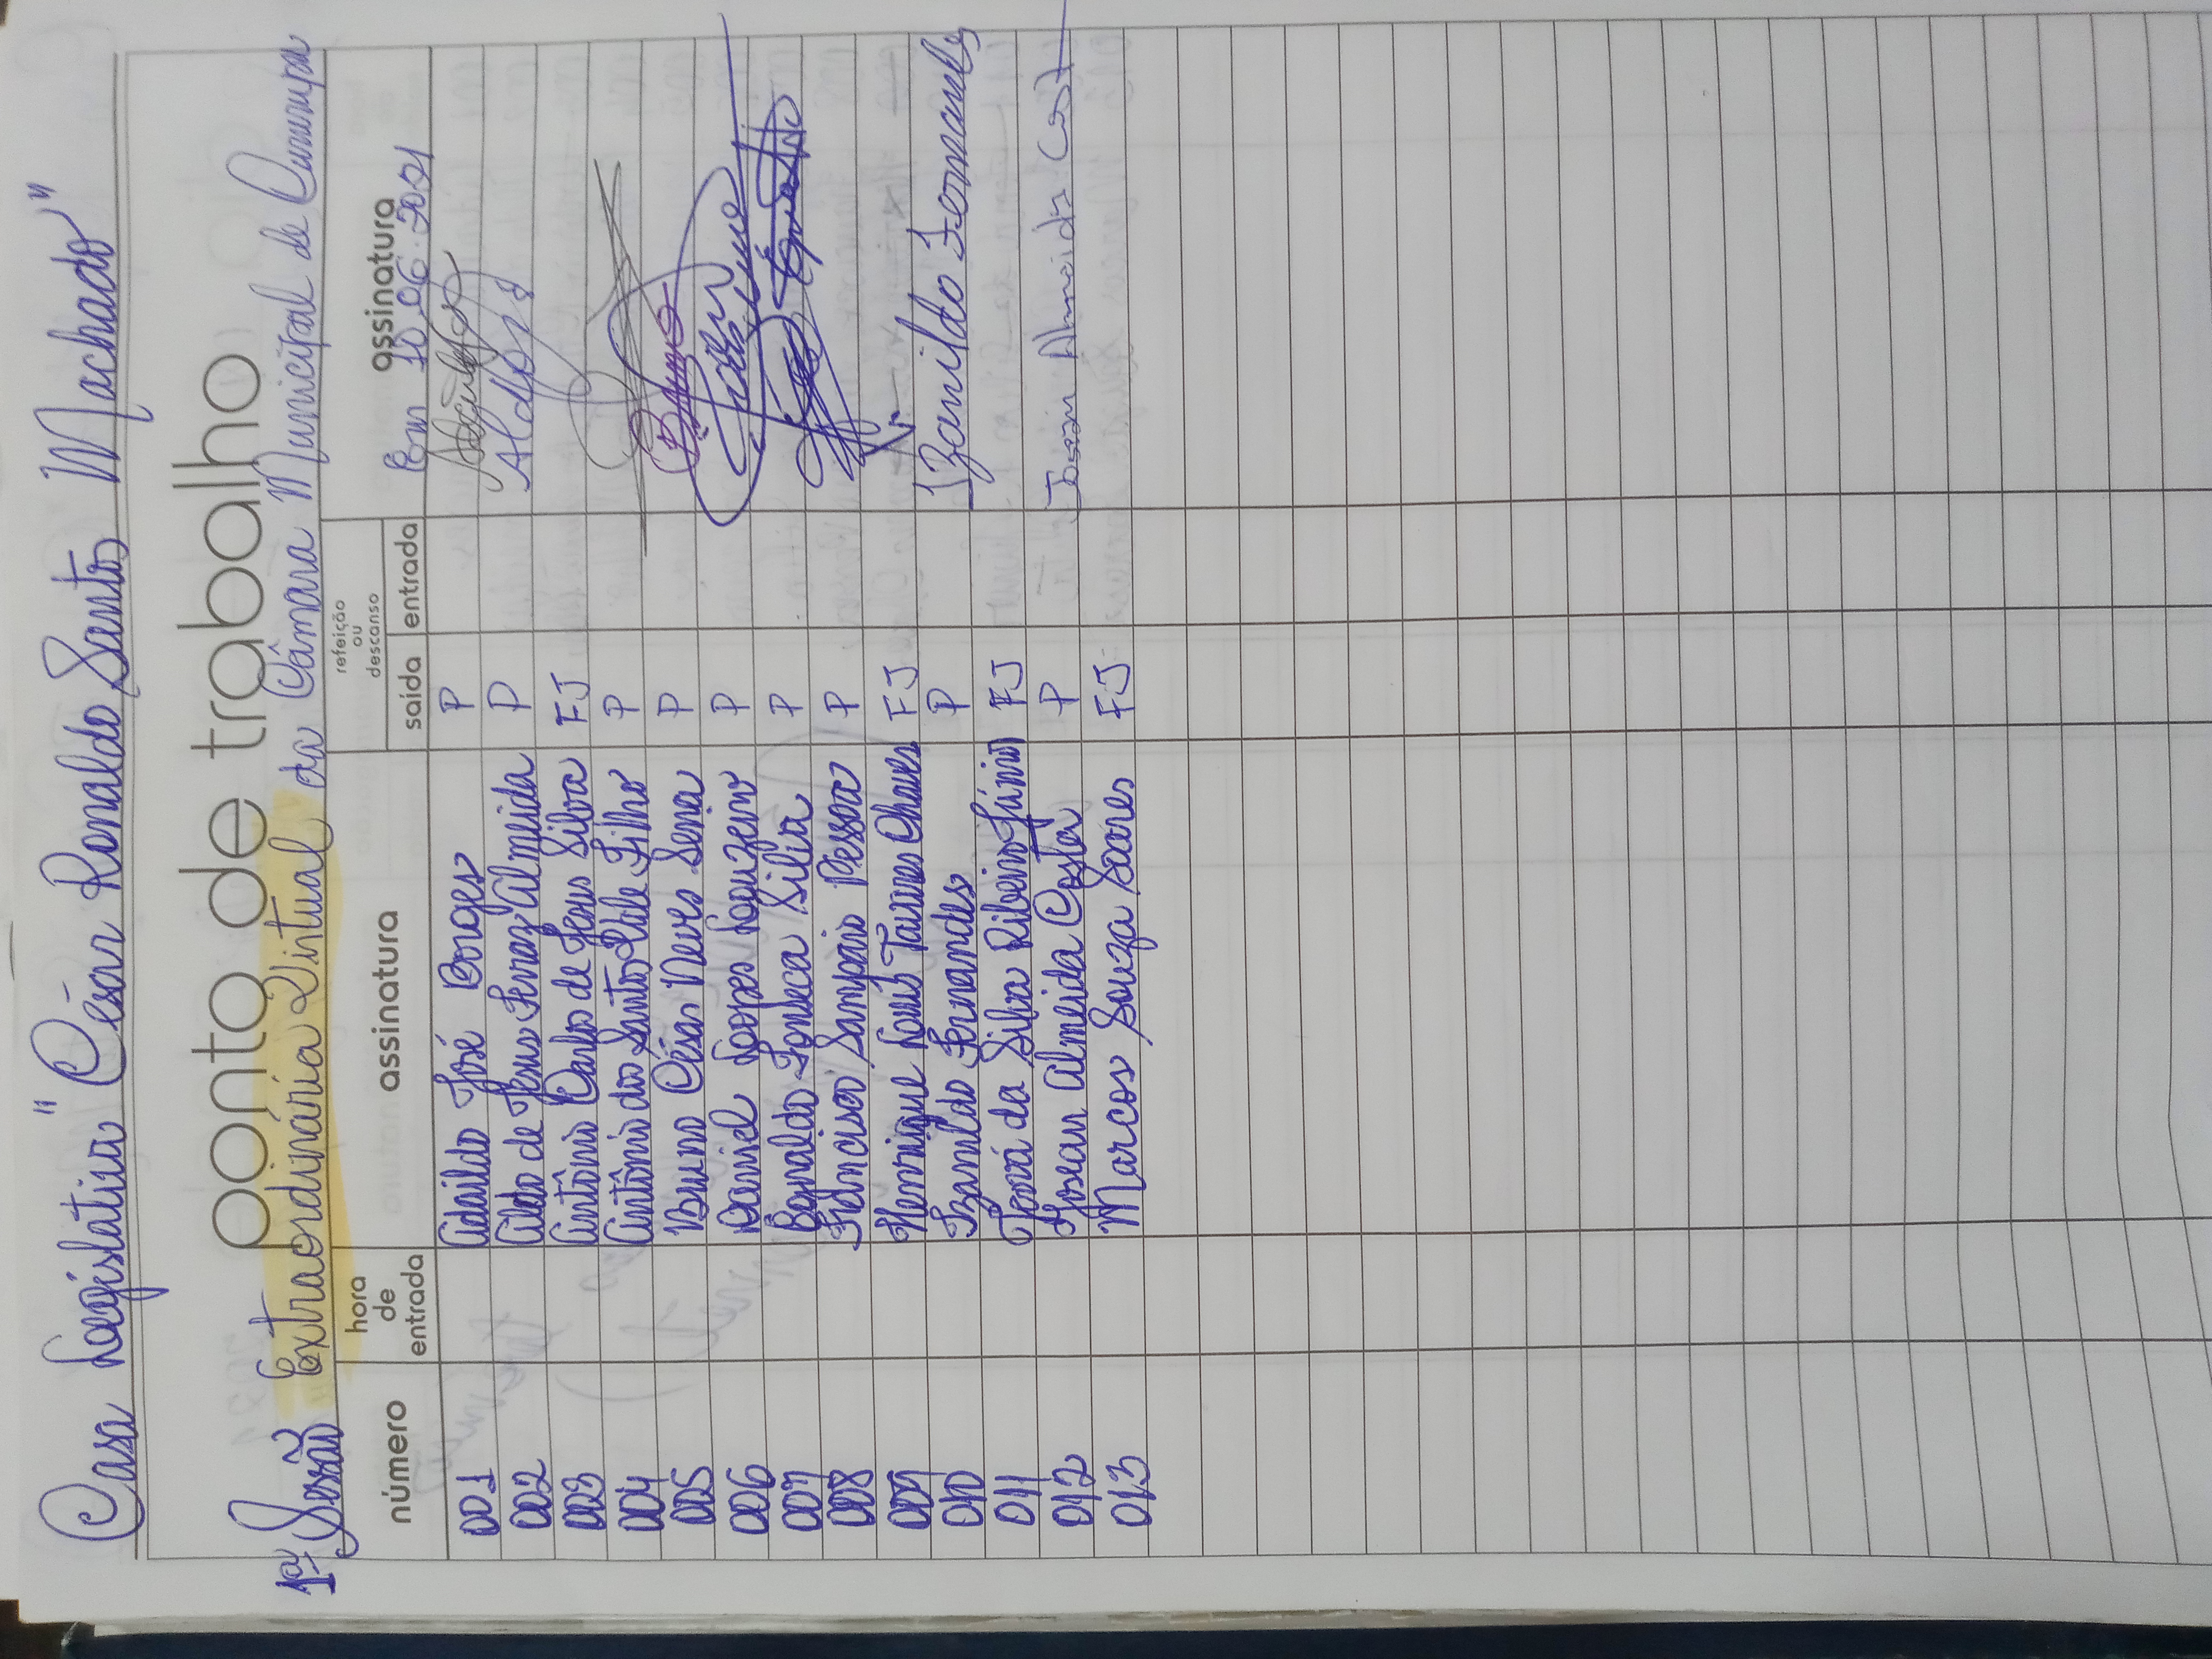 Casa Legislativa "César Ronaldo Santos Machado"
ponto de trabalho
1ª Sessão Extraordinária Virtual da Câmara Municipal de Cururupu
número hora de entrada assinatura refeição ou descanso saída entrada assinatura
Em 10.06.2021
001 Adaildo José Borges P
002 Aldo de Jesus Ferraz Almeida P Aldo
003 Antônio Carlos de Jesus Silva FJ
004 Antônio dos Santos Vale Filho P
005 Bruno César Neves Sena P Bruno
006 Daniel Lopes Louzeiro P
007 Egnaldo Fonseca Silva P
008 Francisco Sampaio Pessoa P
009 Henrique Louis Tavares Chaves FJ
010 Izanildo Fernandes P Izanildo Fernandes
011 Jeová da Silva Ribeiro Júnior FJ
012 Josean Almeida Costa P Josean Almeida Costa
013 Marcos Souza Soares FJ